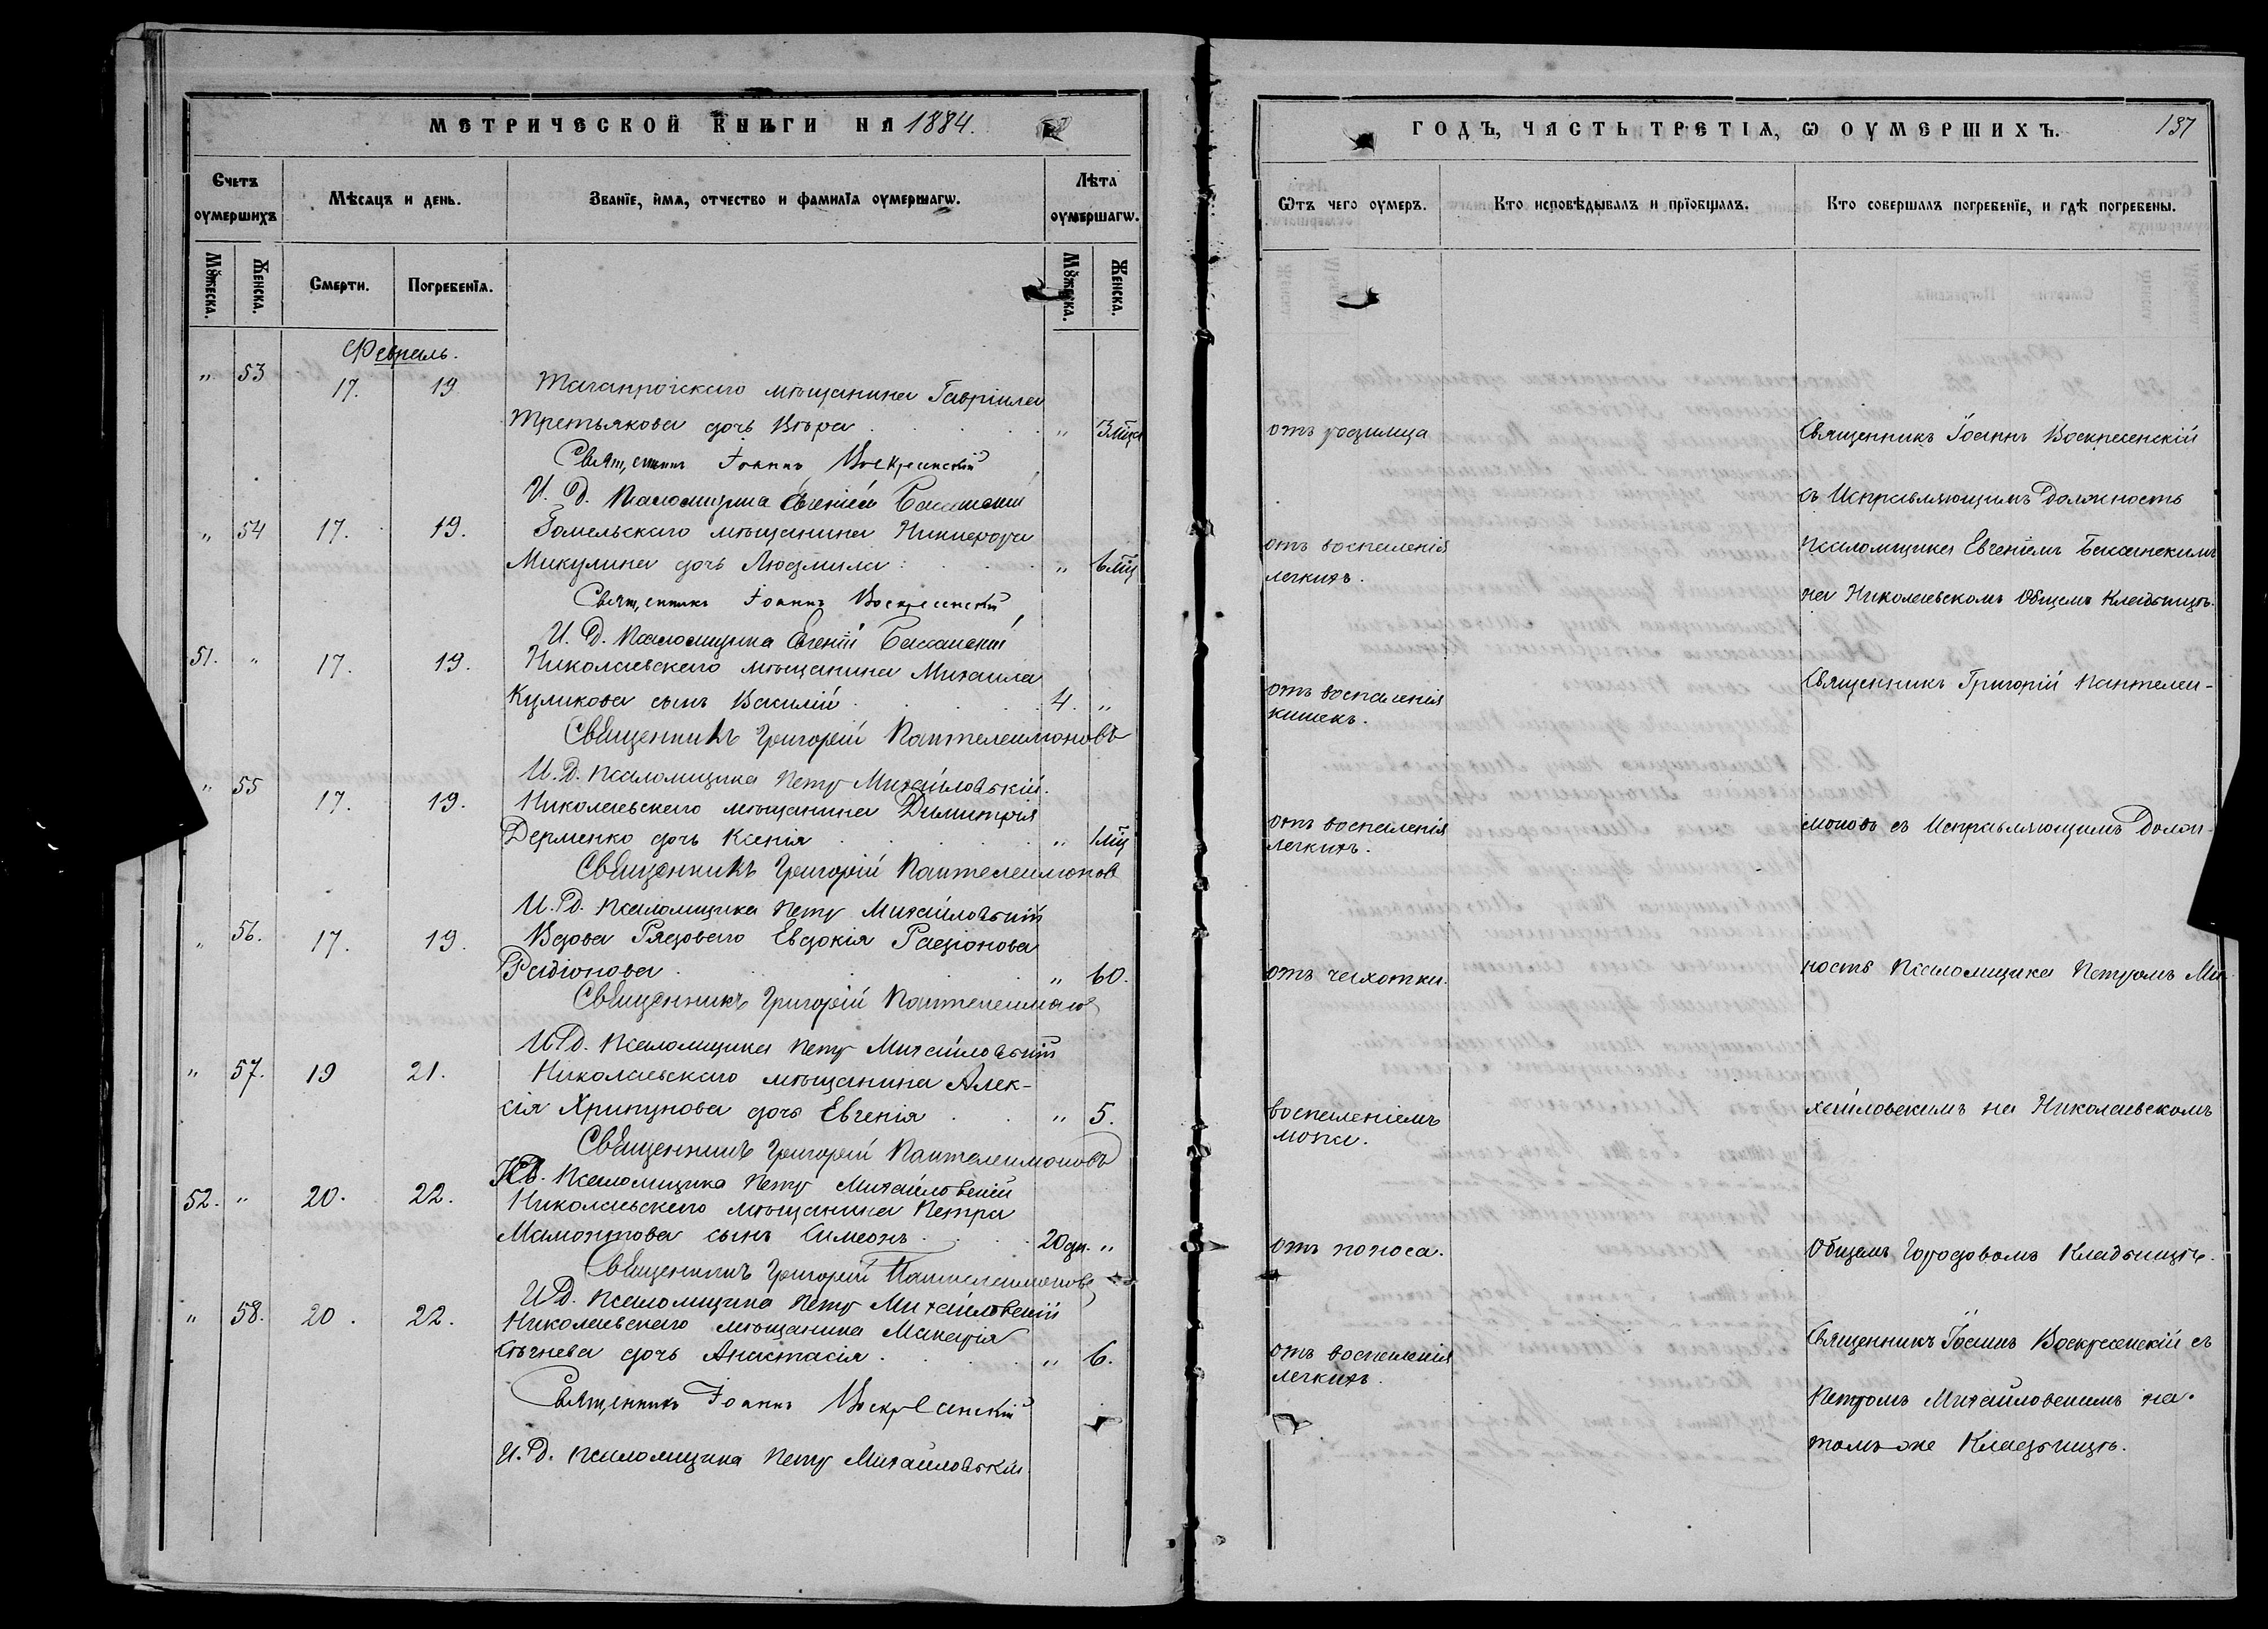 МЕТРИЧЕСКОЙ КНИГИ НА 1884.
Счетъ оумершихъ
Мѣсяцъ и день.
Званіе, имя, отчество и фамиліа оумершагѡ.
Лѣта оумершагѡ.
Мꙋжеска.
Женска.
Смерти.
Погребенїѧ.
Мꙋжеска.
Женска.
Февраль.
" 53 17. 19 Таганрогскаго мѣщанина Гавріила
Третьякова дочь Вѣра " 3 мца
Священникъ Іоаннъ Воскресенскій
И. Д. Псаломщика Евгеній
" 54 17. 19. Гомельскаго мѣщанина Никифора
Микулина дочь Людмила " 6 мц
Священникъ Іоаннъ Воскресенскій
И. Д. Псаломщика Евгеній
51. " 17. 19. Николаевскаго мѣщанина Михаила
Куликова сынъ Василій 4. "
Священникъ Григорій Пантелеимоновъ
И. Д. Псаломщика Петръ Михайловскій.
" 55 17. 19. Николаевскаго мѣщанина Димитрія
Дерменко дочь Ксенія " 1 мц
Священникъ Григорій Пантелеимоновъ
И. Д. Псаломщика Петръ Михайловскій
" 56. 17. 19. Вдова Рядоваго Евдокія Радіонова
Радіонова " 60.
Священникъ Григорій Пантелеимоновъ
И. Д. Псаломщика Петръ Михайловскій
" 57. 19 21. Николаевскаго мѣщанина Алек-
сія Хрипунова дочь Евгенія " 5.
Священникъ Григорій Пантелеимоновъ
И. Д. Псаломщика Петръ Михайловскій
52. " 20. 22. Николаевскаго мѣщанина Петра
Мамонтова сынъ Симеонъ 20 дн. "
Священникъ Григорій Пантелеимоновъ
И. Д. Псаломщика Петръ Михайловскій
" 58. 20. 22. Николаевскаго мѣщанина Макарія
дочь Анастасія " 6.
Священникъ Іоаннъ Воскресенскій
И. Д. Псаломщика Петръ Михайловскій
ГОДЪ, ЧАСТЬ ТРЕТІѦ, Ѡ ОУМЕРШИХЪ. 137
Ѿтъ чего оумеръ.
Кто исповѣдывалъ и прїобщалъ.
Кто совершалъ погребенїе, и гдѣ погребены.
отъ родимца
Священникъ Іоаннъ Воскресенскій
съ Исправляющимъ Должность
отъ воспаленія
Псаломщика Евгеніемъ
легкихъ.
на Николаевскомъ Общемъ Кладбищѣ.
отъ воспаленія
Священникъ Григорій Пантелеи-
кишекъ.
отъ воспаленія
моновъ съ Исправляющимъ Долж-
легкихъ.
отъ чахотки.
ность Псаломщика Петромъ Ми-
воспаленіемъ
хайловскимъ на Николаевскомъ
мозга.
отъ поноса.
Общемъ Городовомъ Кладбищѣ.
отъ воспаленія
Священникъ Іоаннъ Воскресенскій съ
легкихъ.
Петромъ Михайловскимъ на
томъ же Кладбищѣ.